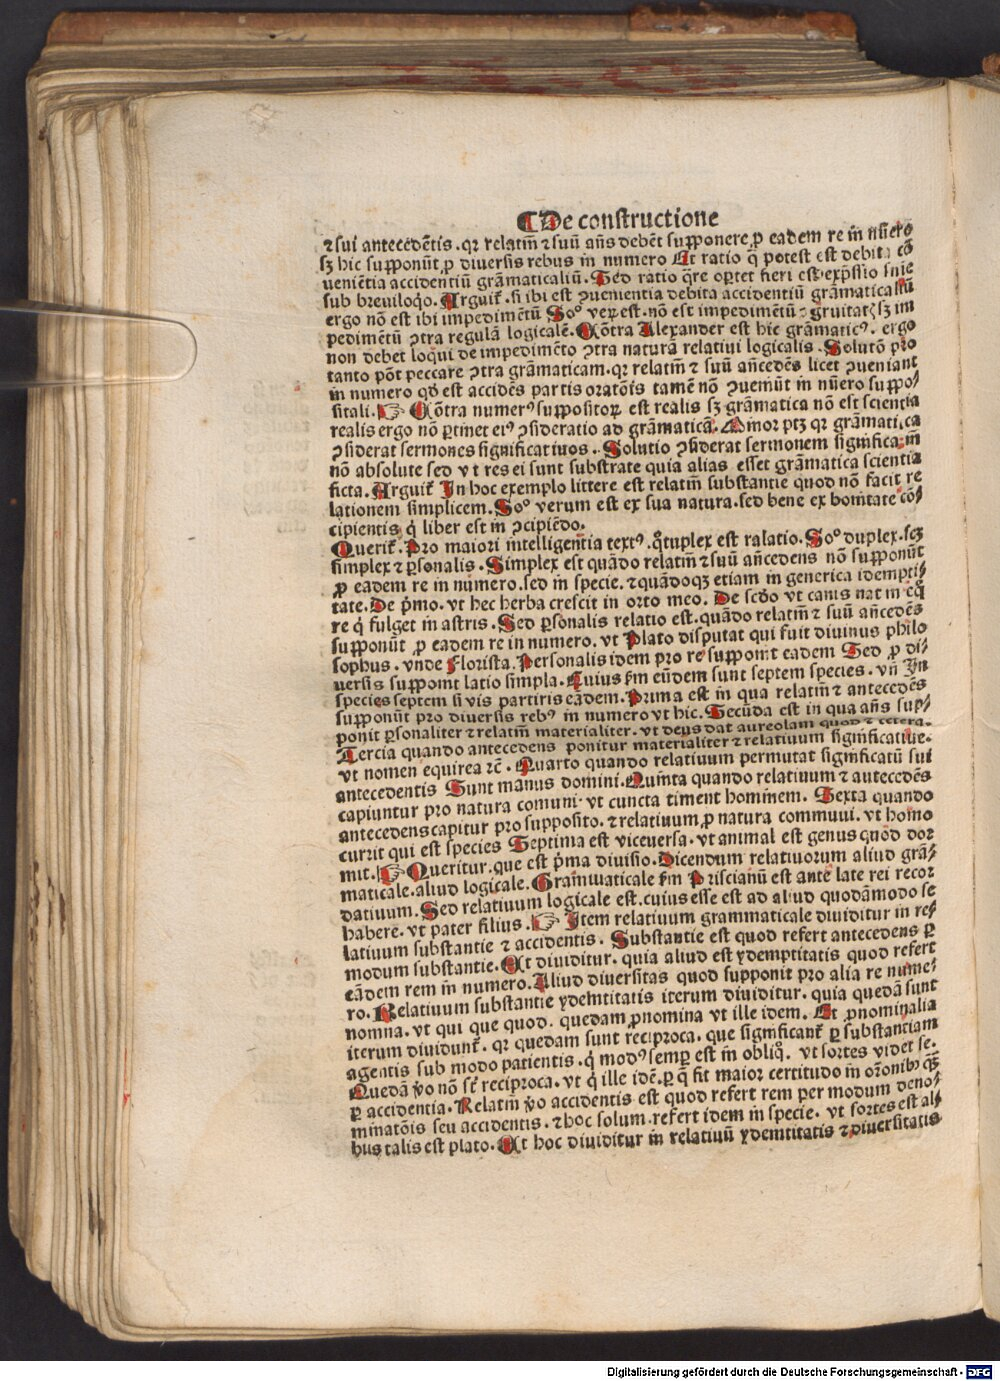 ¶De constructione
⁊ sui antecedẽtis . qꝛ relatiuũ ⁊ suũ añs debẽt supponere ꝓ eadem re in nũero
sꝫ hic supponũt ꝓ diuersis rebus in numero Et ratio q̃ potest est debita cõ
uenientia accidentiũ grãmaticaliũ. Sed ratio q̃re oꝑtet fieri est exp̃ssio
sub breuiloq̃o. Arguiꝶ. si ibi est ꝯuenientia debita accidentiũ grãmaticaliũ
ergo nõ est ibi impedimẽtũ Soᵒ veꝝ est. nõ est impedimẽtũ ꝯgruitatꝭ sꝫ im
pedimẽtũ ꝯtra regulã logicalẽ. Cõtra Alexander est hic grãmaticꝰ. ergo
non debet loqui de impedimẽto ꝯtra naturã relatiui logicalis. Solutõ pro
tanto põt peccare ꝯtra grãmaticam. qꝛ relatiuũ ⁊ suũ añcedẽs licet ꝯueniant
in numero qđ est accidẽs partis oratõis tamẽ nõ ꝯueniũt in nũero suppo⸗
sitali. ☞ Cõtra numerꝰ suppositoꝝ est realis sꝫ grãmatica nõ est scientia
realis ergo nõ ꝑtinet eiꝰ ꝯsideratio ad grãmaticã. Minor ptꝫ qꝛ grãmatica
ꝯsiderat sermones significatiuos. Solutio ꝯsiderat sermonem significatiuũ
nõ absolute sed vt res ei sunt substrate quia alias esset grãmatica scientia
ficta. Arguiꝶ In hoc exemplo littere est relatiuũ substantie quod nõ facit re
lationem simplicem. Soᵒ verum est ex sua natura. sed bene ex bonitate cõ⸗
cipientis q̇ liber est in ꝯcipiẽdo.
Queriꝶ. Pro maiori intelligentia textꝰ. q̃tuplex est ralatio. Soᵒ duplex. scꝫ
simplex ⁊ ꝑsonalis. Simplex est quãdo relatiuũ ⁊ suũ añcedens nõ supponũt
ꝓ eadem re in numero. sed in specie. ⁊ quãdoqꝫ etiam in generica idempti⸗
tate. De p̃mo. vt hec herba crescit in orto meo. De scđo vt canis nat in eq̃
re q̇ fulget in astris. Sed ꝑsonalis relatio est. quãdo relatiuũ ⁊ suũ añcedẽs
supponũt ꝓ eadem re in numero. vt Plato disputat qui fuit diuinus philo
sophus. vnde Florista. Personalis idem pro re supponit eadem Sed ꝓ di⸗
uersis supponit latio simpla. Cuius ẜm eũdem sunt septem species. vñ In
species septem si vis partiris eãdem. Prima est in qua relatiuũ ⁊ antecedẽs
supponũt pro diuersis rebꝰ in numero vt hic. Secũda est in qua añs sup⸗
ponit ꝑsonaliter ⁊ relatiuũ materialiter. vt deus dat aureolam quod ⁊ cetera.
Tercia quando antecedens ponitur materialiter ⁊ relatiuum significatiue.
vt nomen equirea ⁊c̃. Quarto quando relatiuum permutat significatũ sui
antecedentis Sunt manus domini. Quinta quando relatiuum ⁊ autecedẽs
capiuntur pro natura comuni. vt cuncta timent hominem. Sexta quando
antecedens capitur pro supposito. ⁊ relatiuum ꝓ natura commuui. vt homo
currit qui est species Septima est viceuersa. vt animal est genus quod dor
mit. ☞ Queritur. que est p̃ma diuisio. Dicendum relatiuorum aliud grã⸗
maticale. aliud logicale. Gramwaticale ẜm Priscianũ est ante late rei recor
datiuum. Sed relatiuum logicale est. cuius esse est ad aliud quodãmodo se
habere. vt pater filius. ☞ Item relatiuum grammaticale diuiditur in re⸗
latiuum substantie ⁊ accidentis. Substantie est quod refert antecedens ꝑ
modum substantie. Et diuiditur. quia aliud est ydemptitatis quod refert
eãdem rem in numero. Aliud diuersitas quod supponit pro alia re nume⸗
ro. Relatiuum substantie ydemtitatis iterum diuiditur. quia quedã sunt
nomina. vt qui que quod. quedam ꝓnomina vt ille idem. Et ꝓnominalia
iterum diuidunꝶ. qꝛ quedam sunt reciproca. que significanꝶ ꝑ substantiam
agentis sub modo patientis. q̇ modꝰ semꝑ est in obliq̊. vt sortes videt se.
Quedã ꝟo nõ sũt reciproca. vt q̇ ille idẽ. ꝑ q̃ fit maior certitudo in orõnibꝰ q̃ꝫ
ꝑ accidentia. Relatiuũ ꝟo accidentis est quod refert rem per modum deno⸗
minatõis seu accidentis. ⁊ hoc solum refert idem in specie. vt sortes est al⸗
bus talis est plato. Et hoc diuiditur in relatiuũ ydemtitatis ⁊ diuersitatis
Digitalisierung gefördert durch die Deutsche Forschungsgemeinschaft - DFG